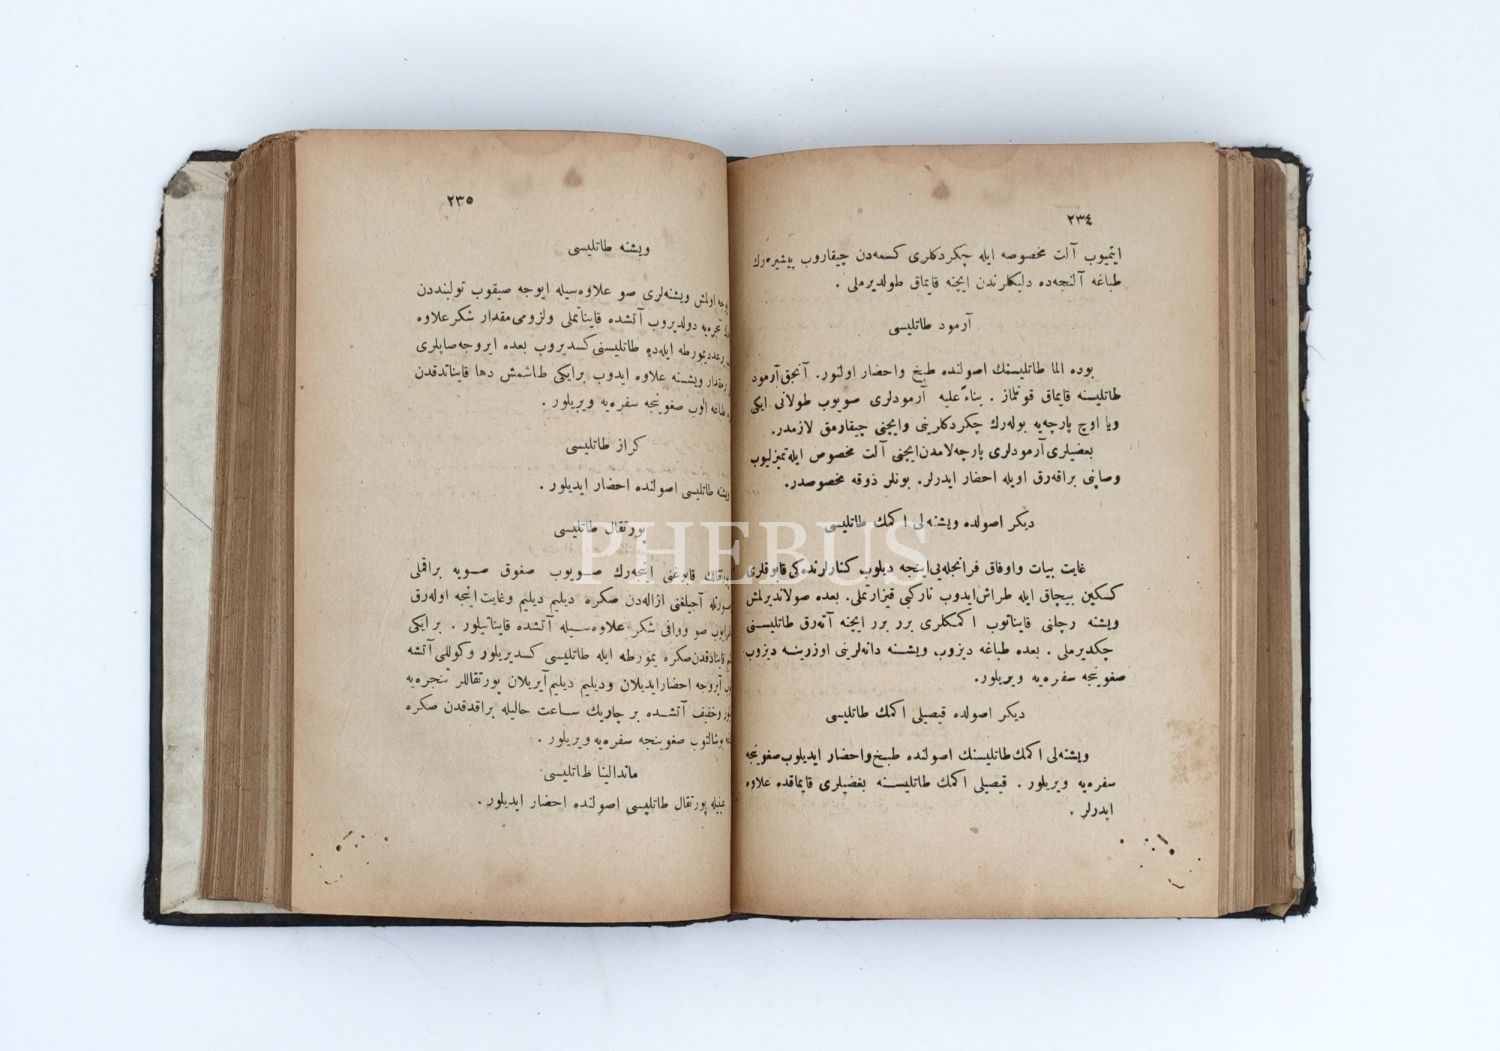 ٢٣٤
ايتميوب آلت مخصوصه ايله چكردكلری كسمه‌دن چيقاروب پيشيره‌رك
طباغه آلنجه‌ده دليكلرندن ايچنه قايماق طولديرملی .
آرمود طاتليسی
بوده الما طاتليسنك اصولنده طبخ واحضار اولنور. آنجق آرمود
طاتليسنه قايماق قونلماز . بناءً عليه آرمودلری صويوب طولانی ايكی
ويا اوچ پارچه‌يه بوله‌رك چكردكلرينی وايچنی چيقارمق لازمدر.
بعضيلری آرمودلری پارچه‌لامدن ايچنی آلت مخصوص ايله تميزليوب
وصاپنی براقه‌رق اويله احضار ايدرلر. بونلر ذوقه مخصوصدر.
ديكر اصولده ويشنه‌لی اكمك طاتليسی
غايت بيات واوفاق فرانجله‌يی اينجه ديلوب كنارلرنده‌كی قابوقلری
كسكين بيچاق ايله طراش ايدوب ناركی قيزارتملی. بعده صولانديرلمش
ويشنه رچلنی قايناتوب اكمكلری برر برر ايچنه آته‌رق طاتليسنی
چكديرملی . بعده طباغه ديزوب ويشنه دانه‌لرينی اوزرينه ديزوب
صغوينجه سفره‌يه ويريلور.
ديكر اصولده قيصيلی اكمك طاتليسی
ويشنه‌لی اكمك طاتليسنك اصولنده طبخ واحضار ايديلوب صغوينجه
سفره‌يه ويريلور . قيصيلی اكمك طاتليسنه بعضيلری قايماقده علاوه
ايدرلر .
٢٣٥
ويشنه طاتليسی
اولمش ويشنه‌لری صو علاوه‌سيله ايوجه صيقوب تولبندن
تنجره‌يه دولديروب آتشده قايناتملی ولزومی مقدار شكر علاوه
يمورطه ايله ده طاتليسنی كسديروب بعده ايروجه صاپلری
مقدار ويشنه علاوه ايدوب برايكی طاشمش دها قايناتدقدن
طباغه الوب صغوينجه سفره‌يه ويريلور .
كراز طاتليسی
ويشنه طاتليسی اصولنده احضار ايديلور .
پورتقال طاتليسی
قابوغنی اينجه‌رك صويوب صغوق صويه براقملی
آجيلغنی ازاله‌دن صكره ديليم ديليم وغايت اينجه اوله‌رق
صو ووافی شكر علاوه‌سيله آتشده قايناتيلور . برايكی
قايناد‌قدن صكره يمورطه ايله طاتليسی كسديريلور وكوللی آتشه
احضار ايديلان وديليم ديليم آيريلان پورتقاللر تنجره‌يه
وخفيف آتشده بر چاريك ساعت حاليله براقدقدن صكره
بوشالتوب صغوينجه سفره‌يه ويريلور .
ماندالينا طاتليسی
عينيله پورتقال طاتليسی اصولنده احضار ايديلور .
PHEBUS